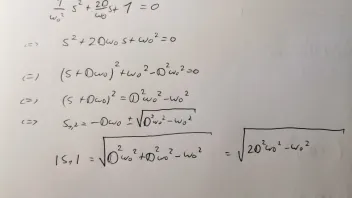 1/ω₀² s² + 2D/ω₀ s + 1 = 0
<=> s² + 2Dω₀s + ω₀² = 0
<=) (s + Dω₀)² + ω₀² - D²ω₀² = 0
<=> (s + Dω₀)² = D²ω₀² - ω₀²
<=> s₁,₂ = -Dω₀ ± √(D²ω₀² - ω₀²)
|s₁| = √(D²ω₀² + D²ω₀² - ω₀²) = √(2D²ω₀² - ω₀²)